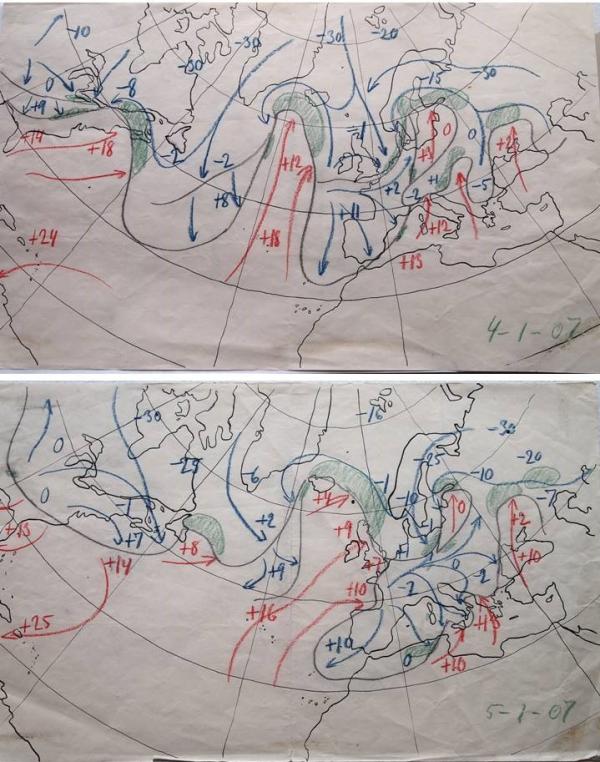 -10
-30
-30
-20
0
-8
-30
-15
-30
+9
+14
+18
-2
-2
+12
0
0
+8
+2
-2
-5
+11
+24
+18
+12
+15
4-1-07
-30
-16
0
-30
-29
-6
-25
-10
-20
0
-1
+4
-1
-10
-7
+2
0
+2
+15
+7
+8
+9
-1
+14
+9
0
+10
+10
-2
-2
+16
+25
+10
0
+10
5-1-07